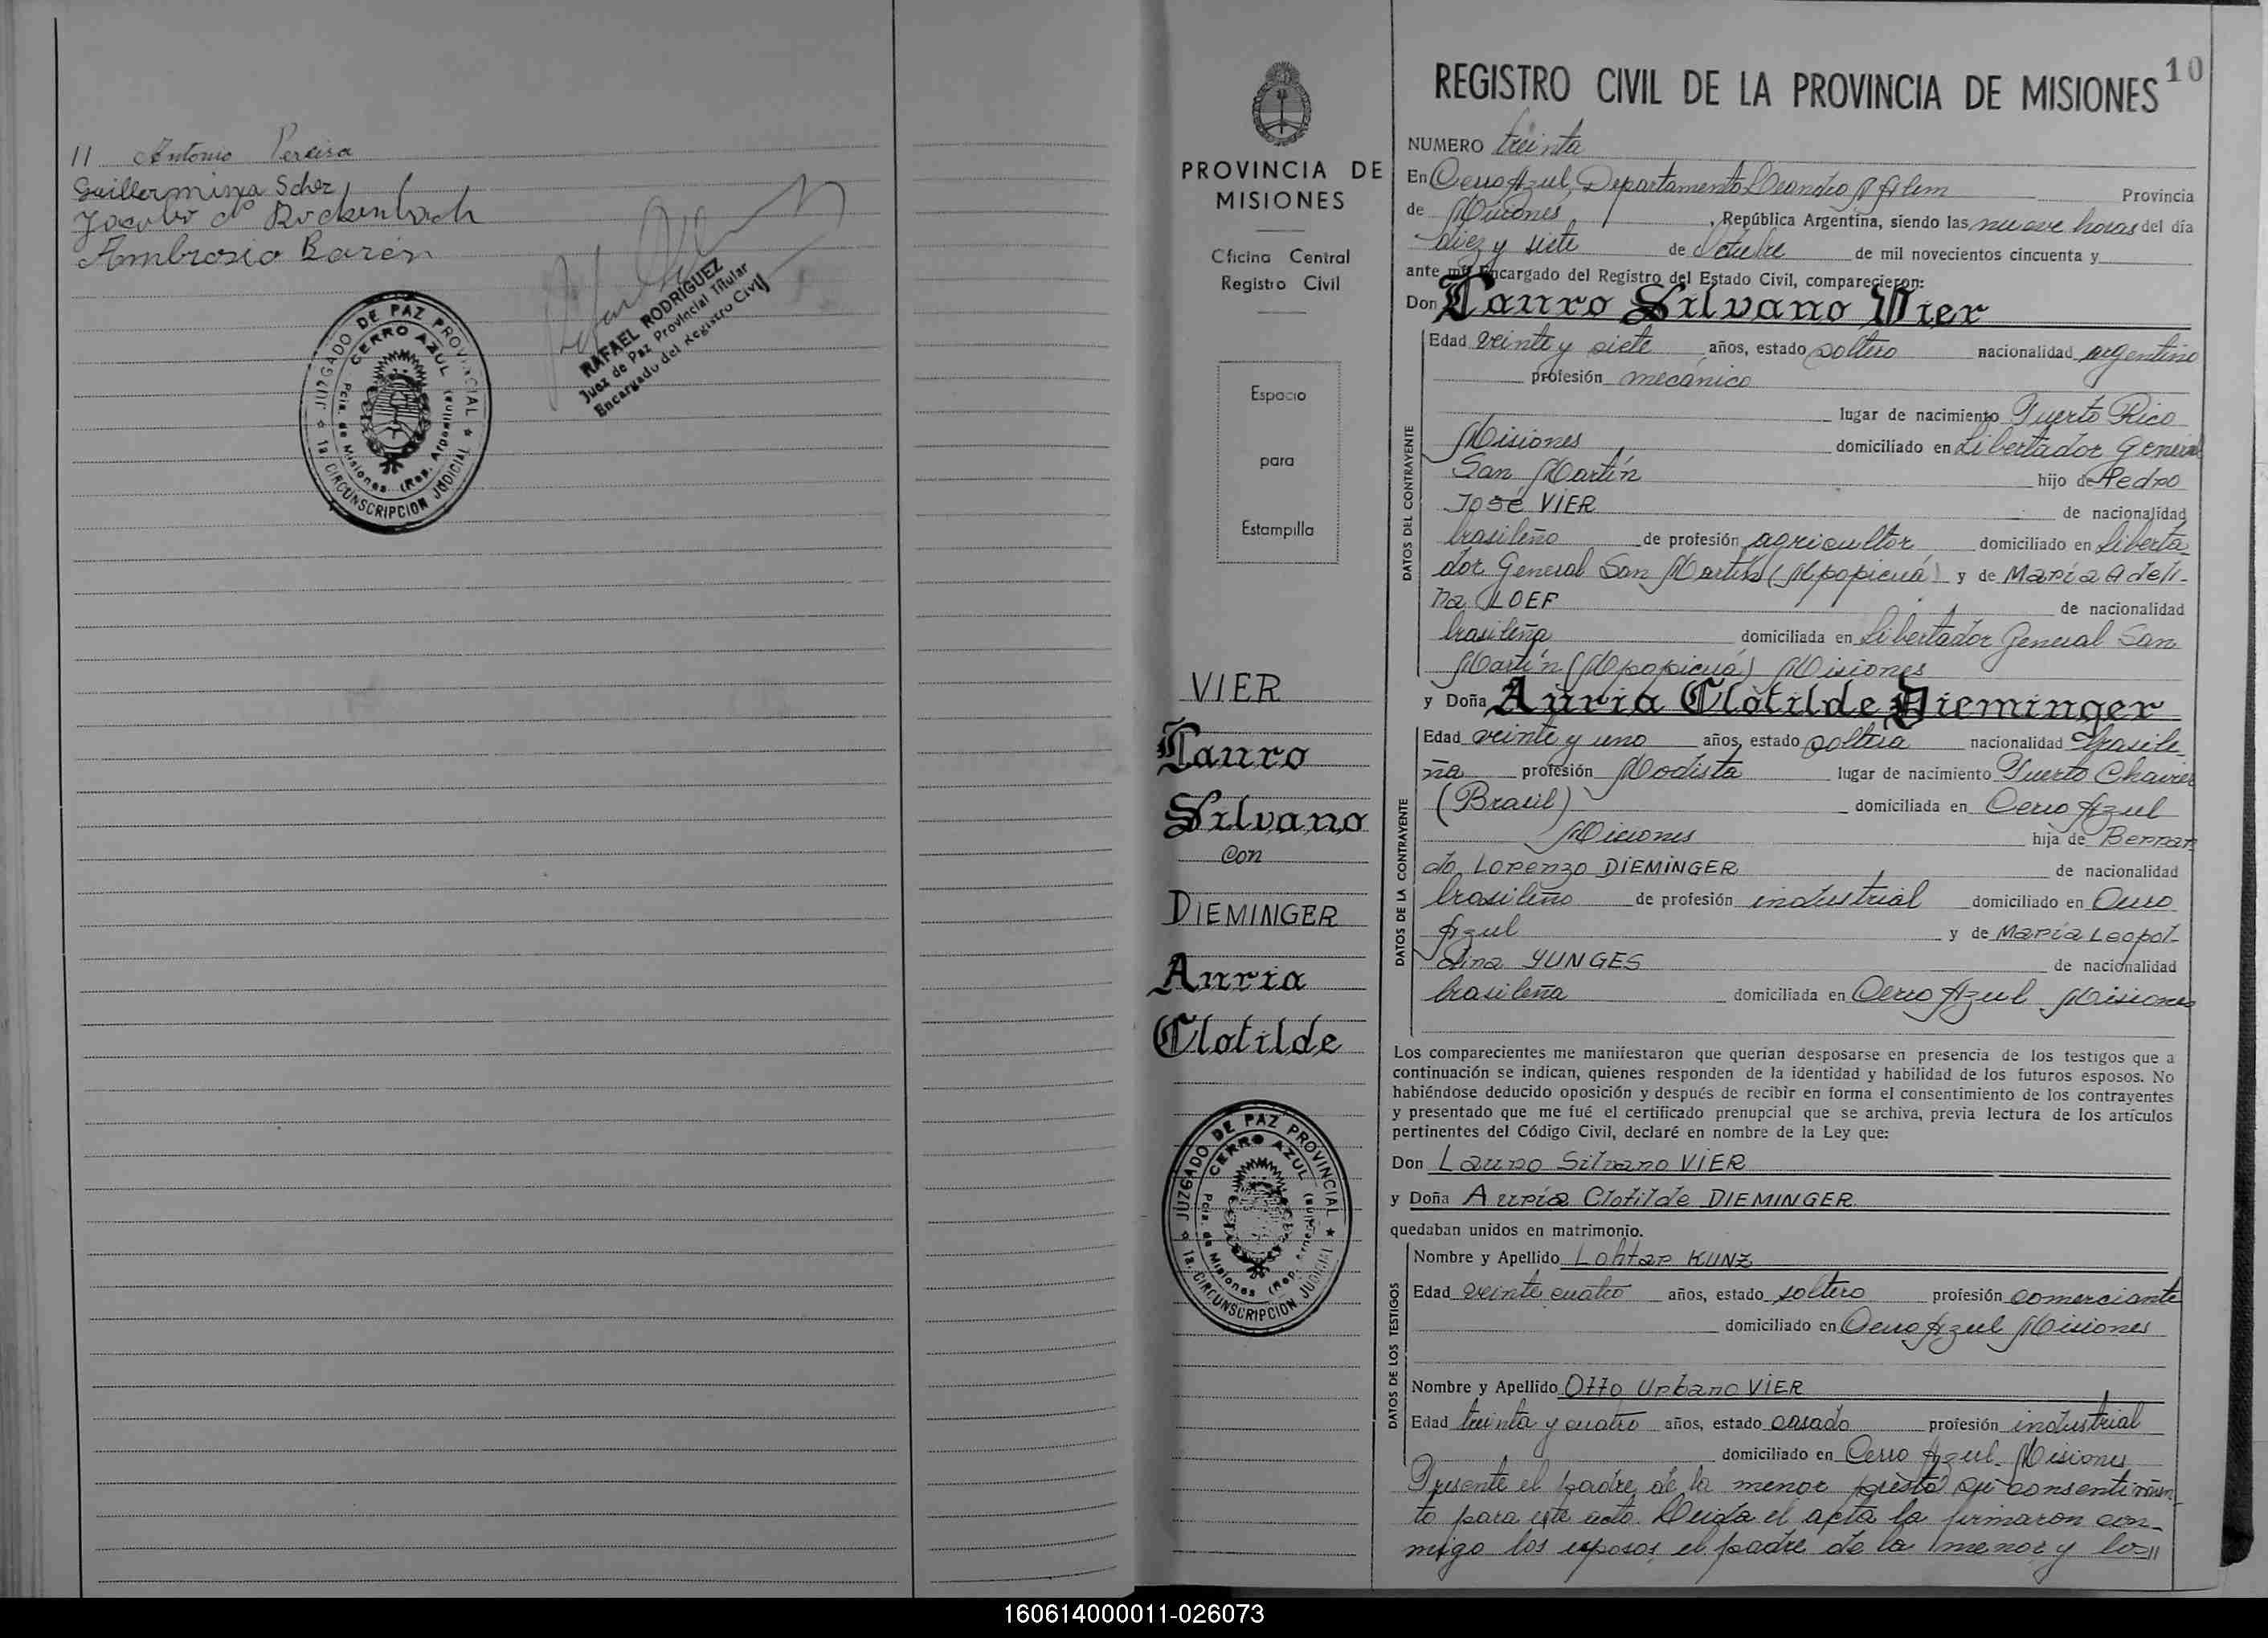 11 Antonio Pereira
Guillermina Scherf
Jacobo A Rockenbach
Ambrosio Barén
RAFAEL RODRIGUEZ
Juez de Paz Provincial Titular
Encargado del Registro Civil
JUZGADO DE PAZ PROVINCIAL
CERRO AZUL
Pcia. de Misiones (Rep. Argentina)
1a. CIRCUNSCRIPCION JUDICIAL
PROVINCIA DE
MISIONES
Oficina Central
Registro Civil
Espacio
para
Estampilla
VIER
Lauro
Silvano
con
DIEMINGER
Auria
Clotilde
JUZGADO DE PAZ PROVINCIAL
CERRO AZUL
Pcia. de Misiones (Rep. Argentina)
1a. CIRCUNSCRIPCION JUDICIAL
10
REGISTRO CIVIL DE LA PROVINCIA DE MISIONES
NUMERO treinta
En Cerro Azul, Departamento Leandro N Alem Provincia
de Misiones, República Argentina, siendo las nueve horas del día
diez y siete de Octubre de mil novecientos cincuenta y
ante mí, Encargado del Registro del Estado Civil, comparecieron:
Don Lauro Silvano Vier
DATOS DEL CONTRAYENTE
Edad veinte y siete años, estado soltero nacionalidad argentino
profesión mecánico
lugar de nacimiento Puerto Rico
Misiones domiciliado en Libertador General
San Martín hijo de Pedro
José VIER de nacionalidad
brasileño de profesión agricultor domiciliado en Liberta
dor General San Martín (Mpopicuá) y de María Adeli-
na LOEF de nacionalidad
brasileña domiciliada en Libertador General San
Martín (Mpopicuá) Misiones
y Doña Auria Clotilde Dieminger
DATOS DE LA CONTRAYENTE
Edad veinte y uno años, estado soltera nacionalidad brasile
ña profesión Modista lugar de nacimiento Puerto Chavier
(Brasil) domiciliada en Cerro Azul
Misiones hija de Bernar
do Lorenzo DIEMINGER de nacionalidad
brasileño de profesión industrial domiciliado en Cerro
Azul y de María Leopol-
dina YUNGES de nacionalidad
brasileña domiciliada en Cerro Azul Misiones
Los comparecientes me manifestaron que querían desposarse en presencia de los testigos que a
continuación se indican, quienes responden de la identidad y habilidad de los futuros esposos. No
habiéndose deducido oposición y después de recibir en forma el consentimiento de los contrayentes
y presentado que me fué el certificado prenupcial que se archiva, previa lectura de los artículos
pertinentes del Código Civil, declaré en nombre de la Ley que:
Don Lauro Silvano VIER
y Doña Auria Clotilde DIEMINGER
quedaban unidos en matrimonio.
DATOS DE LOS TESTIGOS
Nombre y Apellido Lohtar KUNZ
Edad veinte cuatro años, estado soltero profesión comerciante
domiciliado en Cerro Azul Misiones
Nombre y Apellido Otto Urbano VIER
Edad treinta y cuatro años, estado casado profesión industrial
domiciliado en Cerro Azul. Misiones
Presente el padre de la menor prestó su consentimien-
to para este acto. Leida el acta la firmaron con-
migo los esposos, el padre de la menor y los 11
160614000011-026073